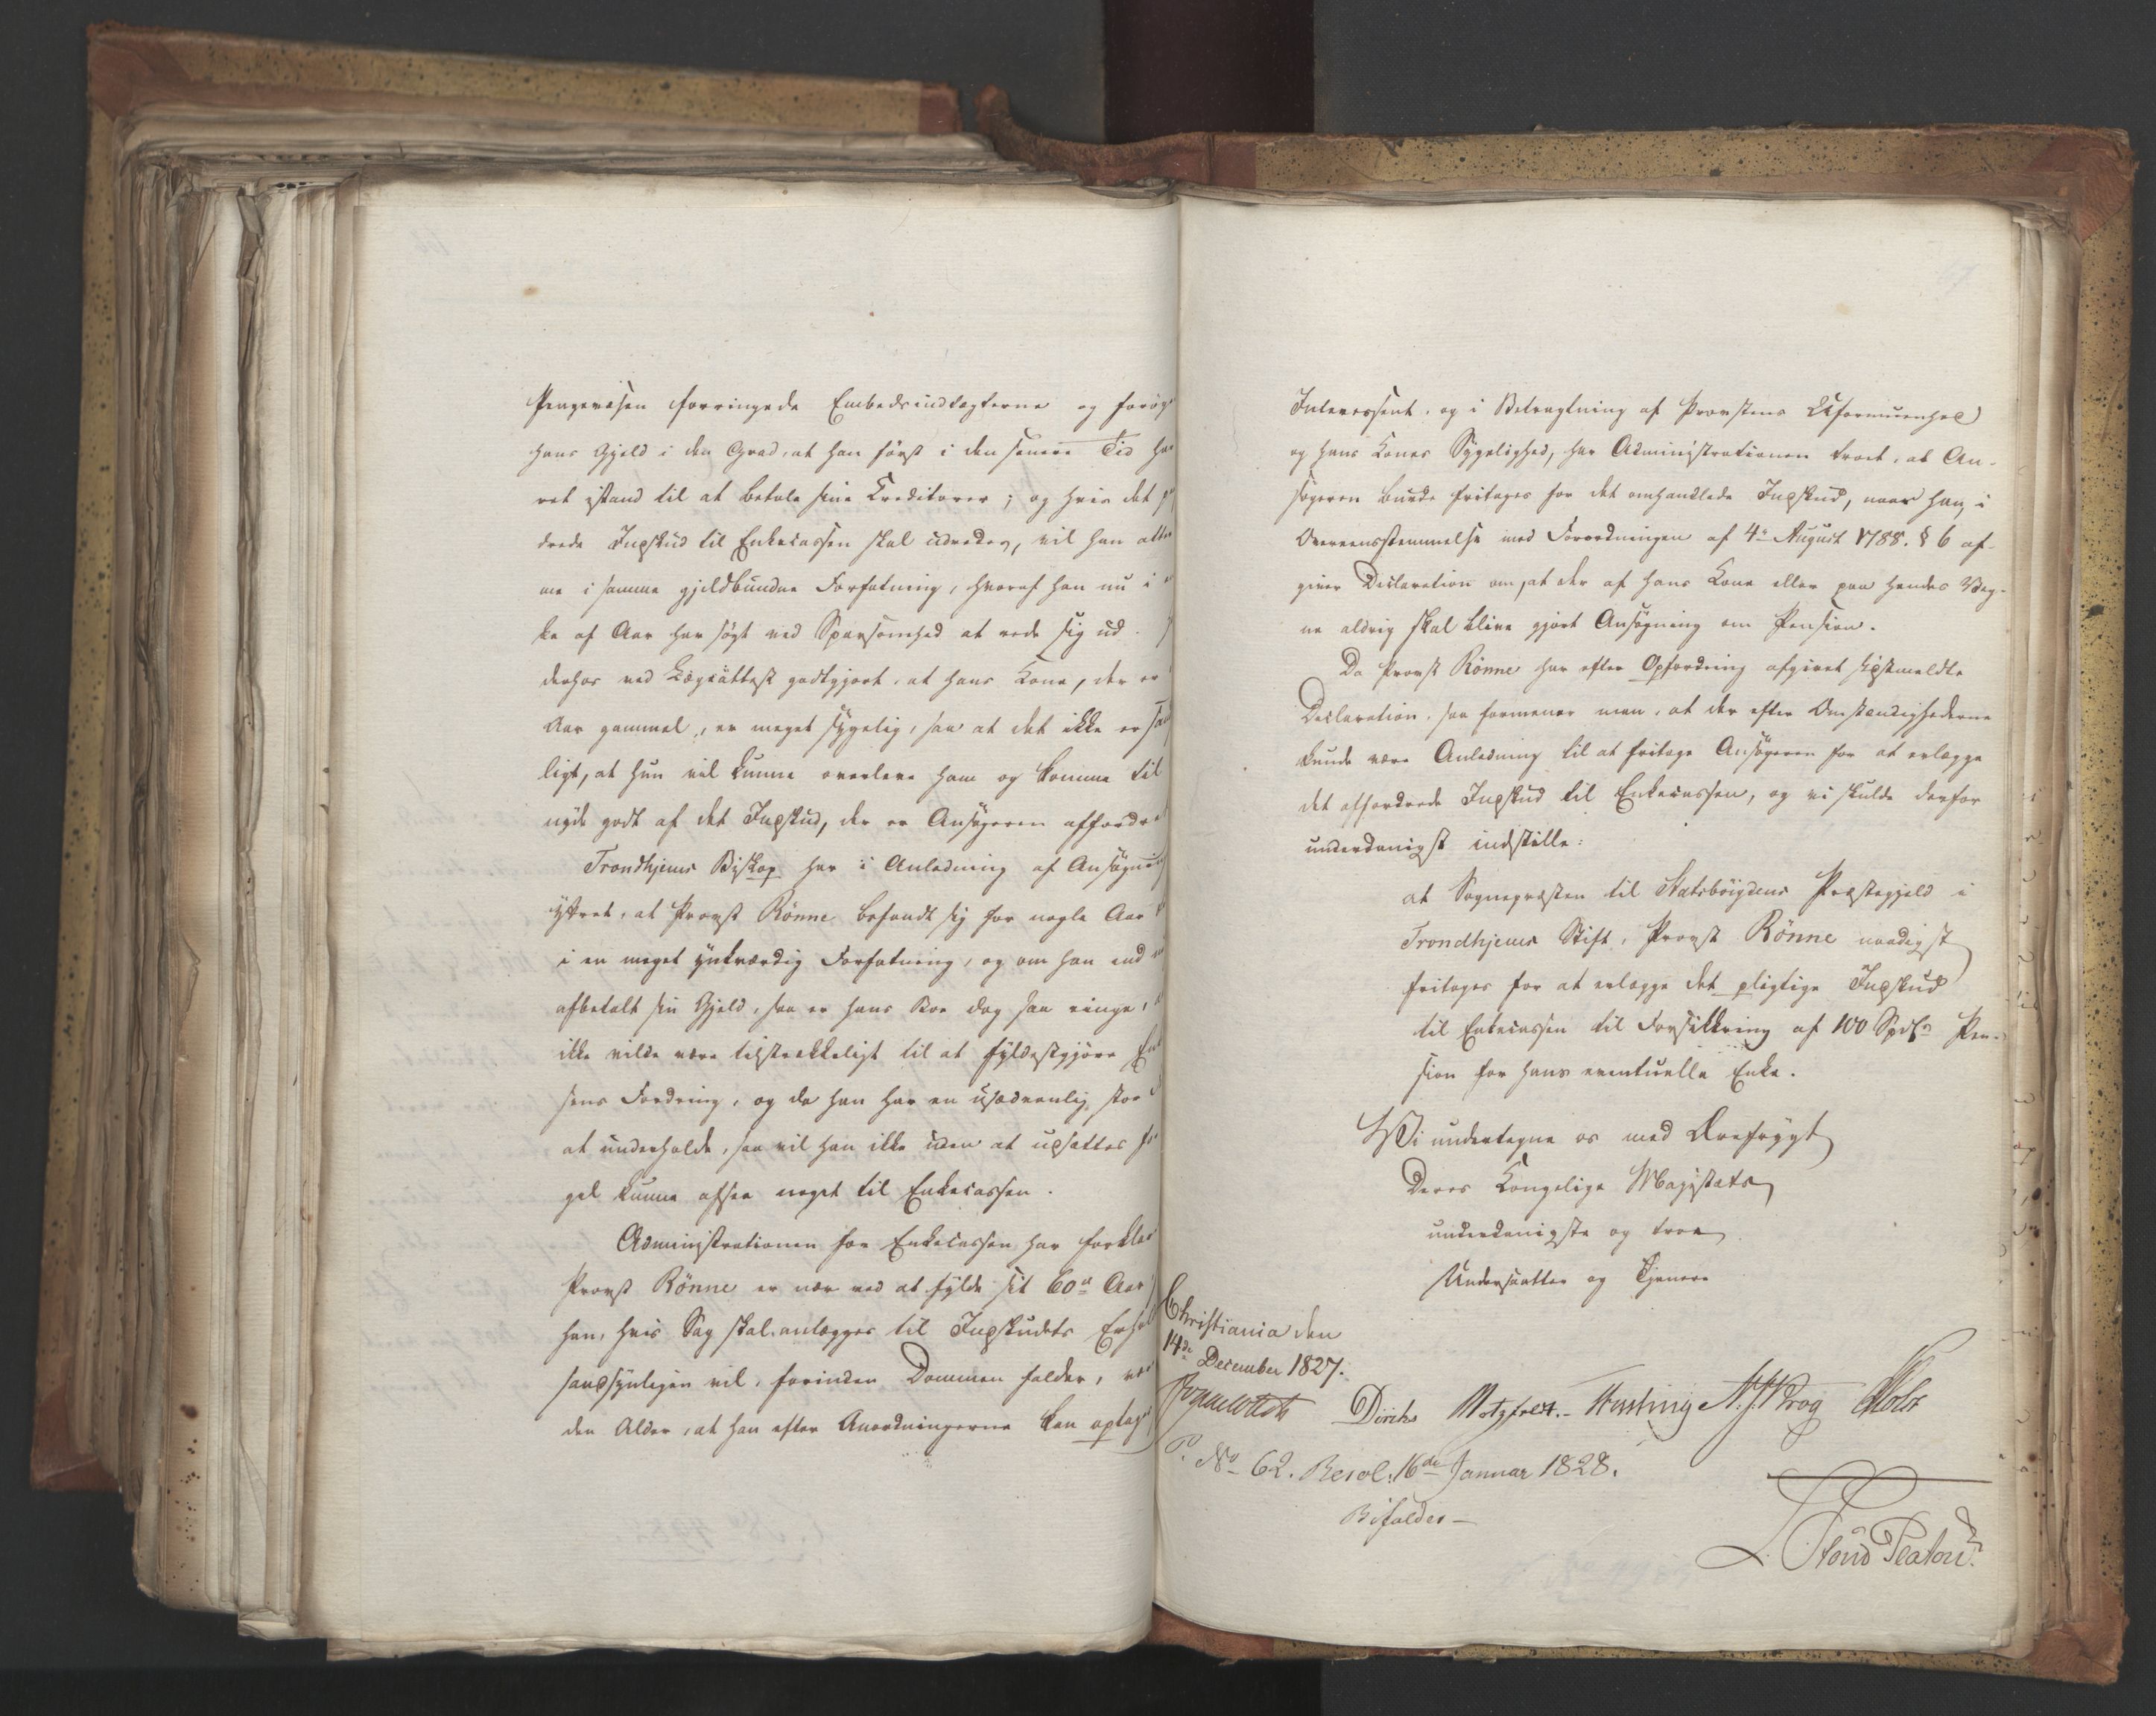 Pengevæsen forringede Embedsindtægterne og forøge
hans Gjeld i den Grad, at han först i den senere Tid ha
vet istand til at betale sine Creditorer; og hvis det
drede Indskud til Enkecassen skal udredes, vil han atter
me i samme gjeldbundne Forfatning, hvoraf han nu i
ke af Aar har sögt ved Sparsomhed at rede sig ud.
derhos ved Lægeattest godtgjort, at hans Kone, der er
Aar gammel, er meget sygelig, saa at det ikke er san
ligt, at hun vil kunne overleve ham og komme til
nyde godt af det Indskud, der er Ansögeren affordr
Trondhjems Biskop har i Anledning af Ansögning
yttret, at Provst Rönne befandt sig for nogle Aar
i en meget ynkværdig Forfatning, og om han end
afbetalt sin Gjeld, saa er hans Boe dog saa ringe,
ikke vilde være tilstrækkeligt til at fyldestgjöre Enk
sens Fordring, og da han har en usædvanlig stor
at underholde, saa vil han ikke uden at udsættes
gel kunne afsee noget til Enkecassen.
Administrationen for Enkecassen har forklar
Provst Rönne er nær ved at fylde sit 60de Aar
han, hvis Sag skal anlægges til Indskudets Erhol
sandsynligen vil, forinden Dommen falder, væ
den Alder, at han efter Anordningerne kan optages
Interessent, og i Betragtning af Provstens Uformuenhed
og hans Kones Sygelighed, har Administrationen troet, at An-
sögeren burde fritages for det omhandlede Indskud, naar han, i
Overeensstemmelse med Forordningen af 4de August 1788. § 6 af-
giver Declaration om, at der af hans Kone eller paa hendes Veg-
ne aldrig skal blive gjort Ansögning om Pension.
Da Provst Rönne har efter Opfordring afgivet sidstmeldte
Declaration, saa formener man, at der efter Omstændighederne
kunde være Anledning til at fritage Ansögeren for at erlægge
det affordrede Indskud til Enkecassen, og vi skulde derfor
underdanigst indstille:
at Sognepræsten til Statsböigdens Præstegjeld i
Trondhjems Stift, Provst Rönne naadigst
fritages for at erlægge det pligtige Indskud
til Enkecassen til Forsikkring af 100 Spdlr Pen-
sion for hans eventuelle Enke.
Vi undertegne os med Ærefrygt
Deres Kongelige Majestæts
underdanigste og troe
Undersaatter og Tjenere
Christiania den
14de December 1827.
Diriks Motzfeldt. Krog Holst
P. No 62. Resol. 16de Januar 1828.
Bifaldes